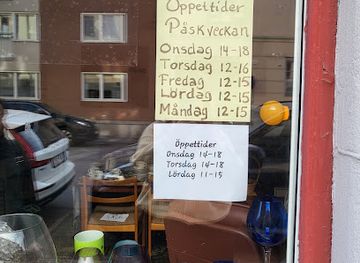 Öppettider
Påskveckan
Onsdag 14-18
Torsdag 12-16
Fredag 12-15
Lördag 12-15
Måndag 12-15
Öppettider
Onsdag 14-18
Torsdag 14-18
Lördag 11-15